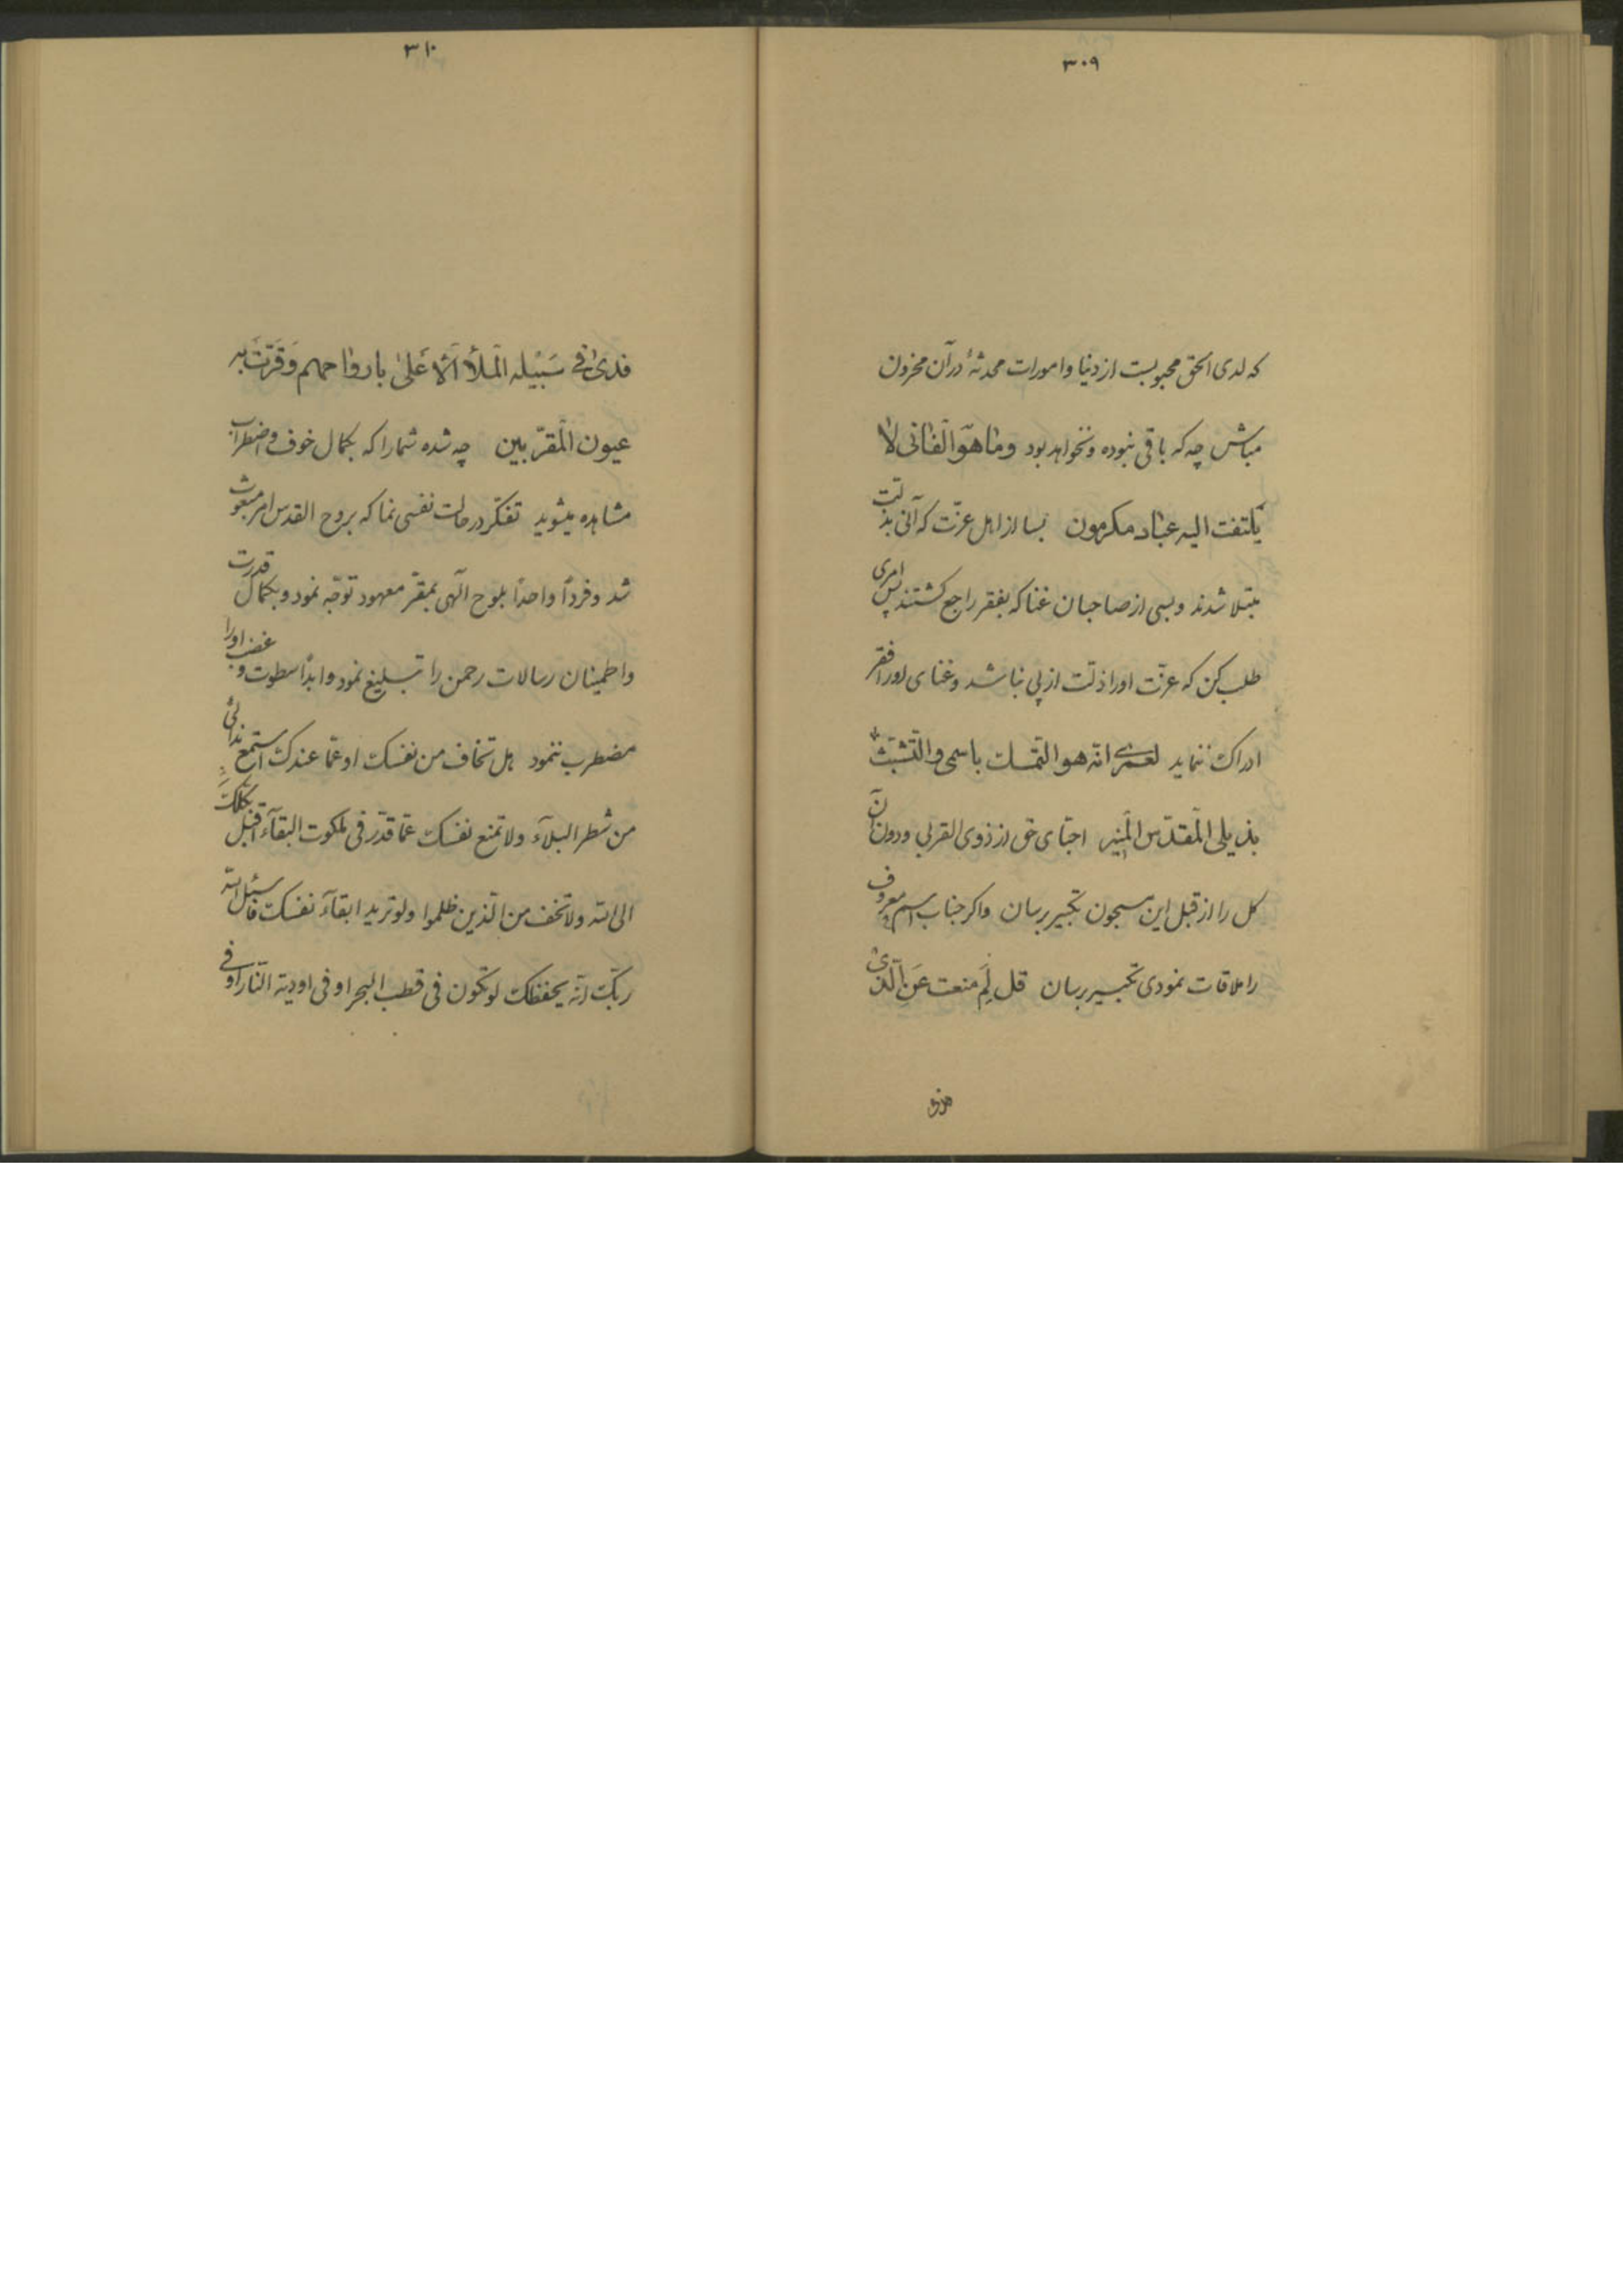 ۳۰۹
که لدی الحق محبوبست از دنیا و امورات محدثهٔ در آن محزون
مباش چه که باقی نبوده و نخواهد بود وما هو الفانی لا
یلتفت الیه عباد مکرمون بسا از اهل عزّت که آنی بذلّت
مبتلا شدند و بسی از صاحبان غنا که بفقر راجع کشتند پس امری
طلب کن که عزّت او را ذلّت از پی نباشد و غنای او را فقر
ادراک ننماید لعمری انّه هو التمسّک باسمی والتّشبّث
بذیلی المقدّس المنیر احبّای حق از ذوی القربی ودون آن
کل را از قبل این مسجون تکبیر برسان واکر جناب اسم معروف
را ملاقات نمودی تکبیر برسان قل لِمَ منعت عَنِ الّذی
فدی
۳۱۰
فدی فی سَبیله الملأ الأَعلیٰ بارواحهم وَقَرّتْ به
عیون المقرّبین چه شده شما را که بکمال خوف و اضطراب
مشاهده میشوید تفکّر در حالت نفسی نما که بروح القدس امر مبعوث
شد و فرداً واحداً بلوح الٓهی بمقرّ معهود توجّه نمود و بکمال قدرت
واطمینان رسالات رحمن را تبلیغ نمود وابداً سطوت و غضب او را
مضطرب ننمود هل تخاف من نفسک او عمّا عندک استمع ندائی
من شطر البلآء ولا تمنع نفسک عمّا قدّر فی ملکوت البقآء اقبل بکلّک
الی الله ولا تخف من الّذین ظلموا ولو ترید ابقآء نفسک فاسئل الله
ربّک انّه یحفظک لو تکون فی قطب البحر او فی اودیة النّار او فی